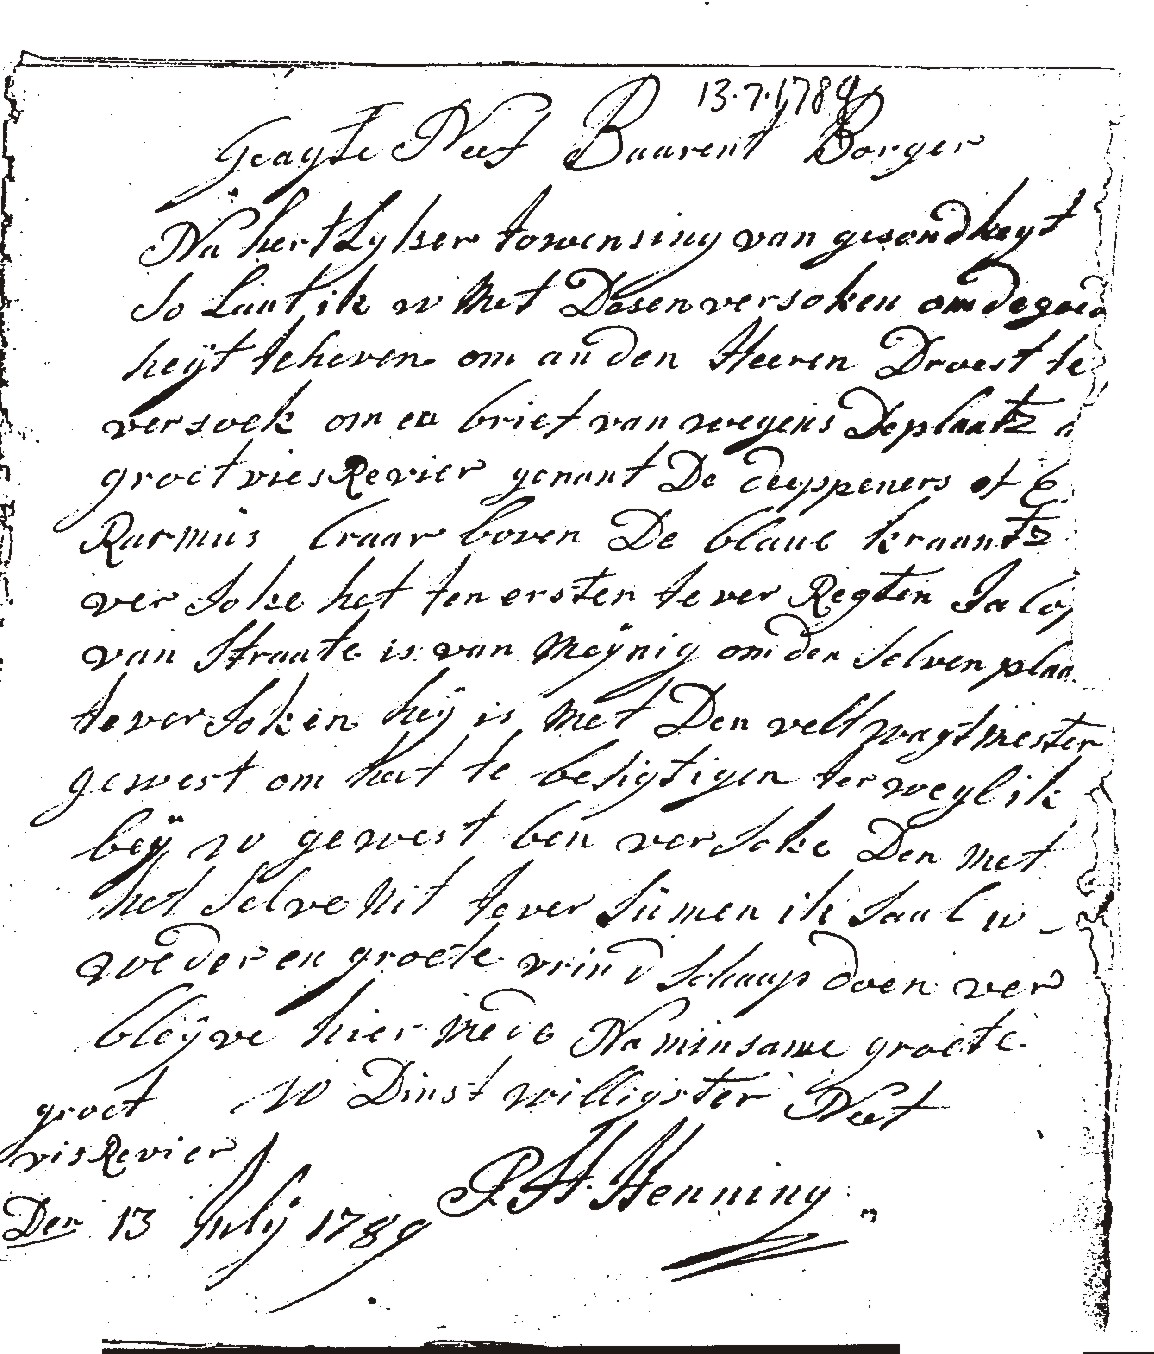 13.7.1789
Geagte Neef Baarent Borger
Na hertLykser towensing van gesondheyt
So Laat ik w Met Desen versoken om de goed
heyt te heven om an den Heeren Drvest te
versoek om en brief van wegens De plaatz a
groet vies Revier genant De deeppeners of
Rasmüs Craar boven De blaue kraantz
ver Soke het ten ersten te ver Regten Jaco
van Straate is van Meÿnig om den Selven plaa
te ver Soken heÿ is Met Den velt wagtmester
gewest om het te besigtigen ter weyl ik
beÿ w gewest ben ver Soke Den Met
het Selve Nit te ver Sümen ik Saal w
weder en groete vrind Schaap doen ver
bleÿve hier Mede Na minsame groete
groet w Dinst willigster Neef
vis Revier
P H Henning
Den 13 Julÿ 1789